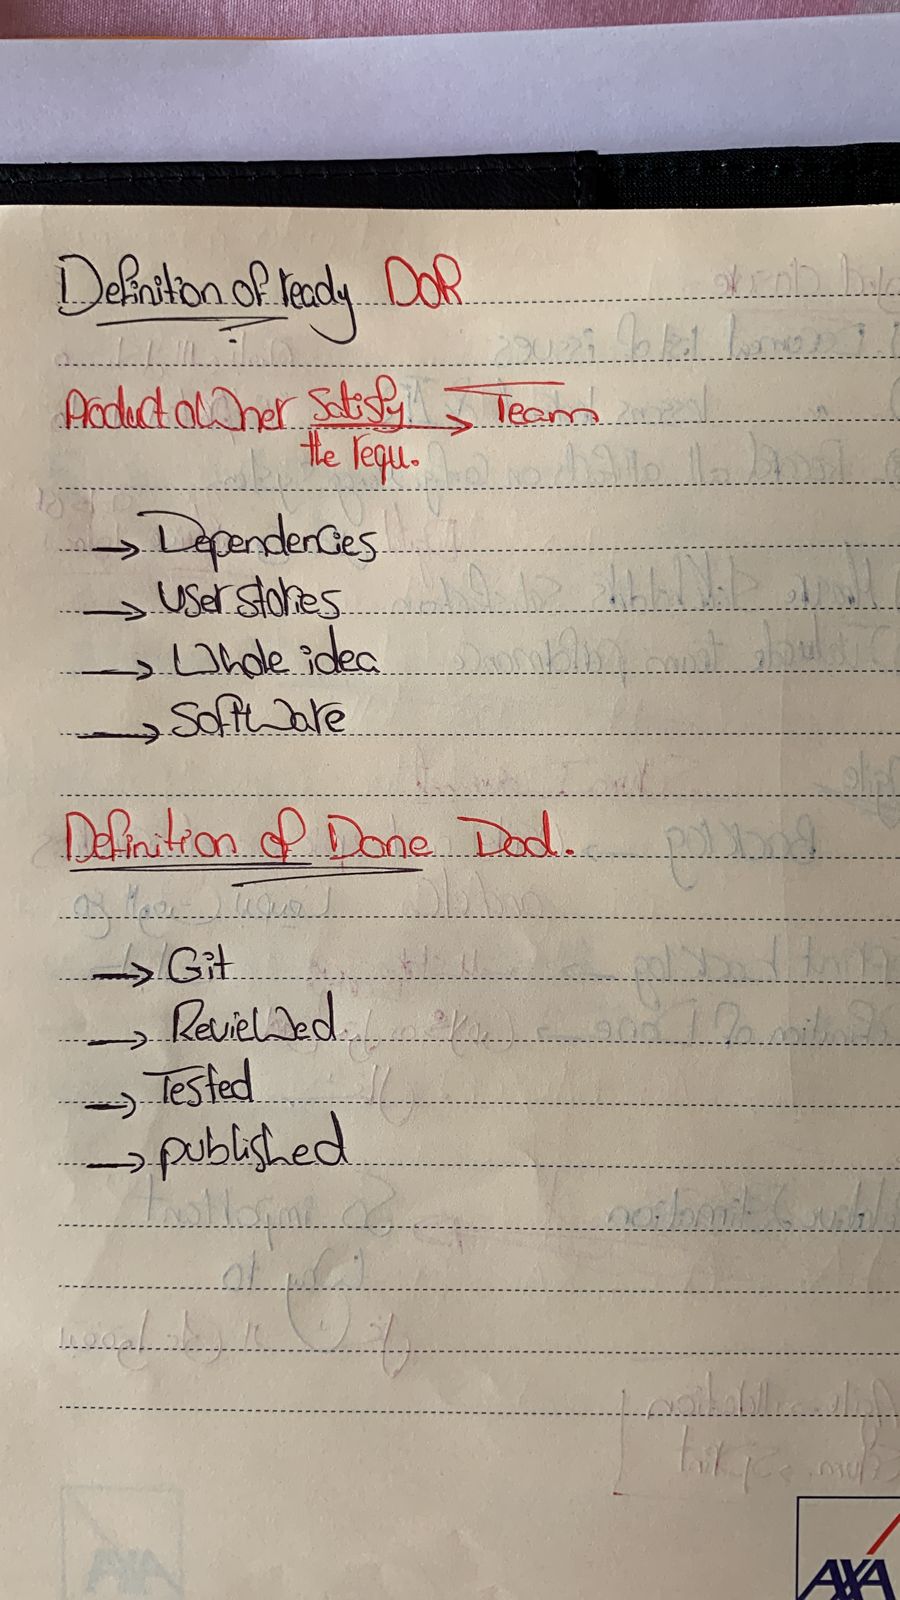 Definition of ready DoR
Product oWner satisfy → Team
the requ.
→ Dependencies
→ User stories
→ Whole idea
→ SoftWare
Definition of Done Dod.
→ Git
→ RevieWed
→ Tested
→ published
AXA